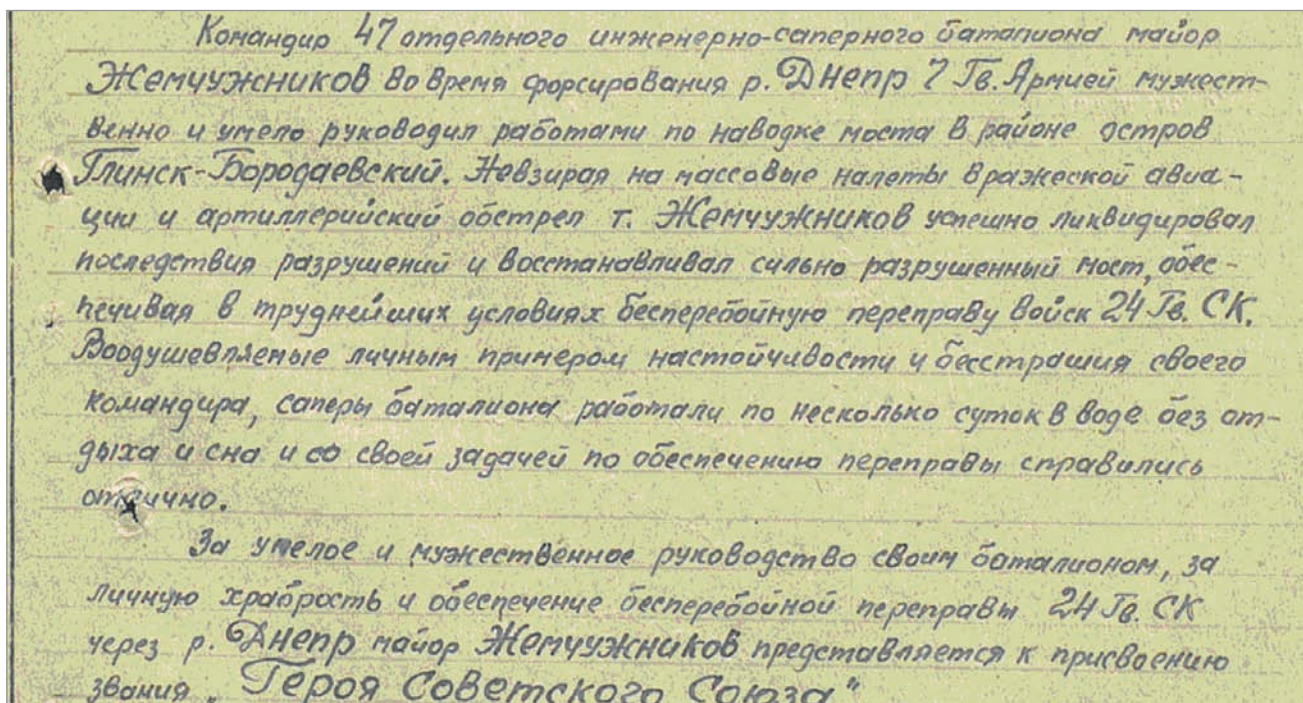 Командир 47 отдельного инженерно-саперного баталиона майор
Жемчужников во время форсирования р. Днепр 7 Гв. Армией мужест-
венно и умело руководил работами по наводке моста в районе остров
Глинск-Бородаевский. Невзирая на массовые налеты вражеской авиа-
ции и артиллерийский обстрел т. Жемчужников успешно ликвидировал
последствия разрушений и восстанавливал сильно разрушенный мост, обес-
печивая в труднейших условиях бесперебойную переправу войск 24 Гв. СК.
Воодушевляемые личным примером настойчивости и бесстрашия своего
командира, саперы баталиона работали по несколько суток в воде без от-
дыха и сна и со своей задачей по обеспечению переправы справились
отлично.
За умелое и мужественное руководство своим баталионом, за
личную храбрость и обеспечение бесперебойной переправы 24 Гв. СК
через р. Днепр майор Жемчужников представляется к присвоению
звания „Героя Советского Союза"